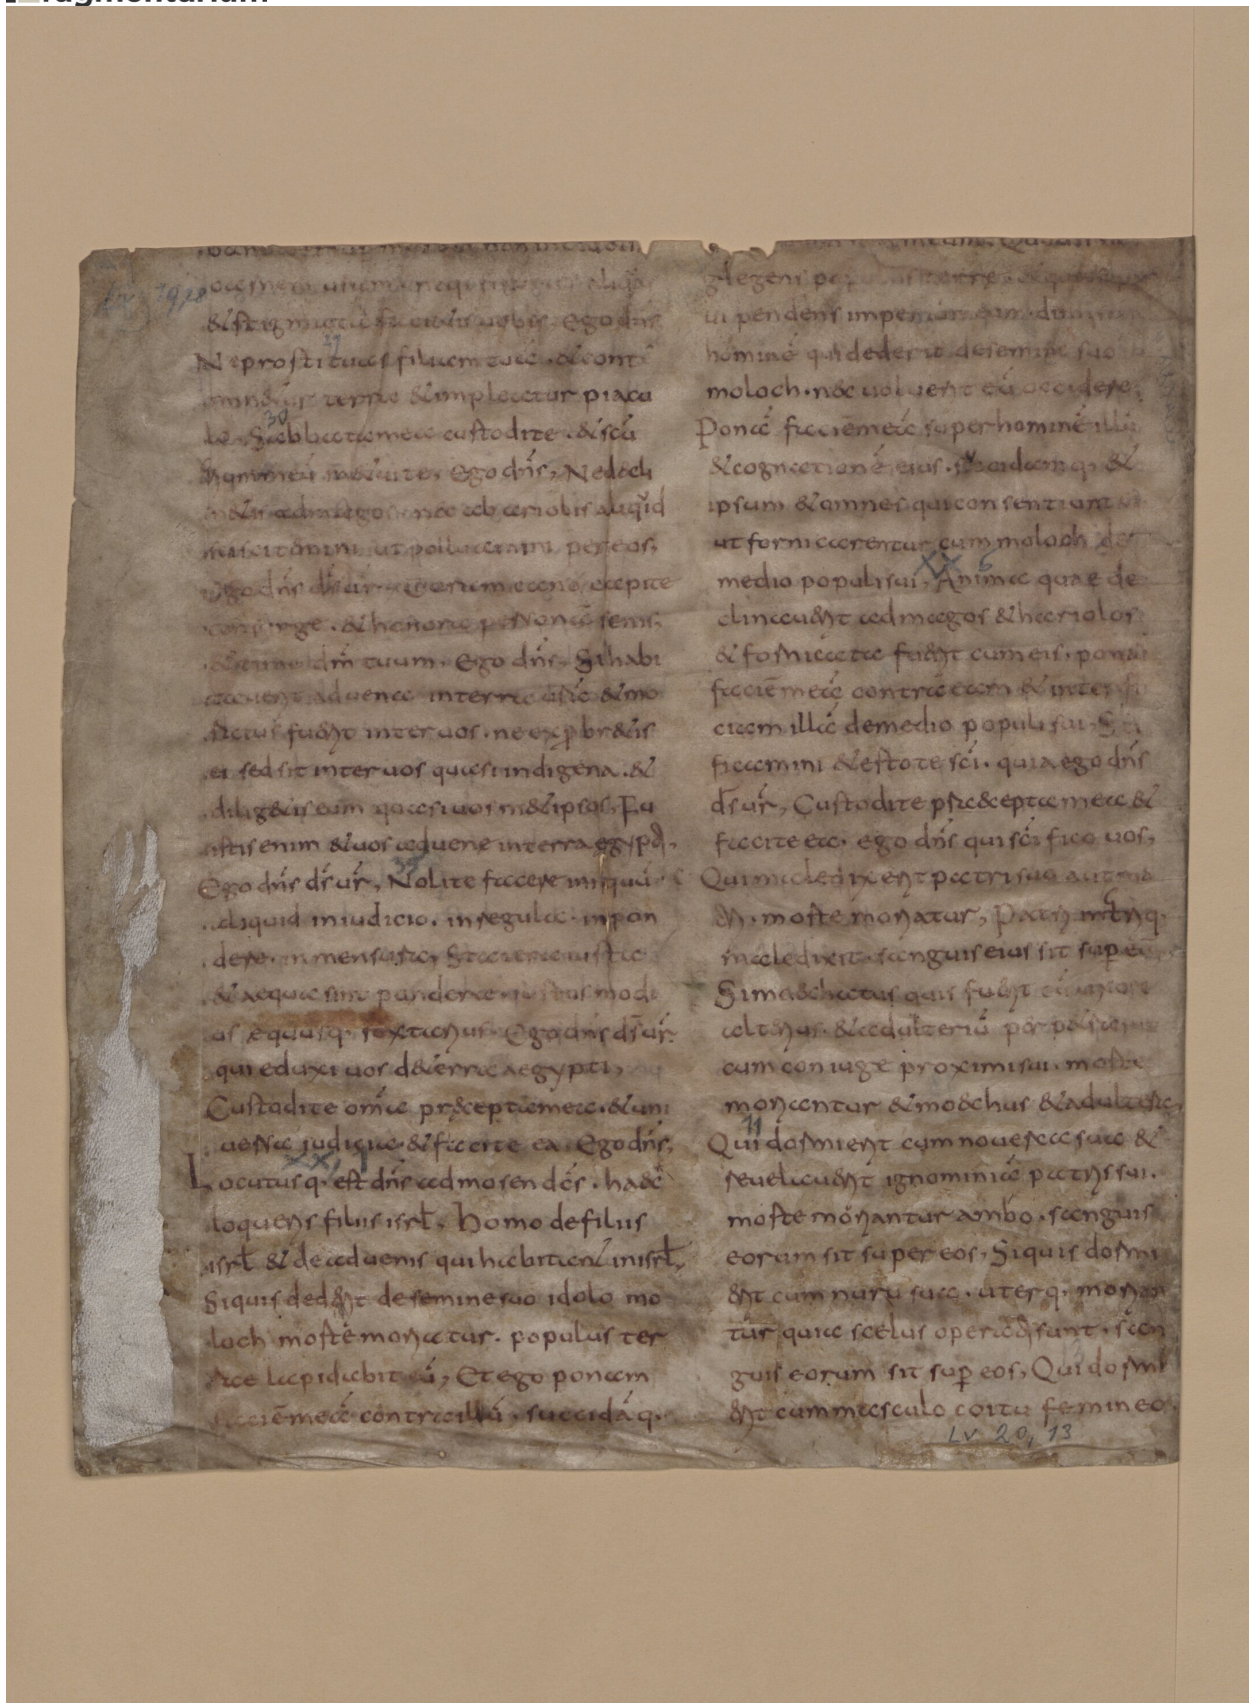 Lv 19,28
& stigmata facietis uobis. Ego dn̄s
29
Ne prostituas filiam tuā. & conta
min&ur terra & impleatur piacu
30
lo. Sabbata mea custodite. & scu
meū m&uite. Ego dn̄s, Nedecli
n&is ad magos. nec ab ariolis aliquid
sciscitemini ut polluamini per eos.
Ego dn̄s d̄s ur̄
consurge. & honora personā senis.
& time dm̄ tuum. Ego dn̄s, Si habi
tauerit aduena in terra & mo
ratus fuerit inter uos. ne exp̄br&is
ei sed sit inter uos quasi indigena. &
diligetis eum quasi uosm&ipsos, Fu
istis enim & uos aduene in terra egypti.
35
Ego dn̄s d̄s ur̄, Nolite facere iniquū
aliquid in iudicio. in regula. in pon
dere. in mensura, Statera iusta
& aequa sint pondera. iustus modi
us equusq. sextarius. Ego dn̄s d̄s ur̄.
qui eduxi uos d&erra aegypti,
Custodite om̄ia pr&cepta mea. & uni
uersa iudicia. & facite ea. Ego dn̄s,
XX, 1
Locutusq. est dn̄s ad mosen dēs. haec
loqueris filiis isrl̄, Homo de filiis
isrl̄ & de aduenis qui habitant in isrl̄,
Siquis dederit de semine suo idolo mo
loch morte moriatur. populus ter
rae lapidabit eū, Et ego ponam
faciē meā contra illū. succidāq.
ui pendens imperium
hominē qui dederit de semine suo
moloch. nec uoluerit eū occidere,
Ponā faciē meā super hominē illū
& cognationē eius. succidamq. &
ipsum & omnes qui consentiunt ei
ut fornicarentur cum moloch de
XX 6
medio populi sui, Anima quae de
clinauerit ad magos & hariolos
& fornicata fuerit cum eis. ponā
faciē meā contra eam & interfi
ciam illā de medio populi sui, Sci
ficamini & estote sc̄i. quia ego dn̄s
d̄s ur̄, Custodite praecepta mea &
facite ea. ego dn̄s qui sc̄i fico uos,
Qui maledixerit patri suo aut ma
tri. morte moriatur, Patri matriq.
maledixit. sanguis eius sit sup̄ eū
Si mechatus quis fuerit cū uxore
alterius. & adulteriū perpetrauit
cum coniuge proximi sui. morte
moriantur & moechus & adultera,
11
Qui dormierit cum nouerca sua &
reuelauerit ignominiā patris sui.
morte moriantur ambo. sanguis
eorum sit super eos, Siquis dormi
erit cum nuru sua. uterq. morian
tur quia scelus operati sunt. san
guis eorum sit sup̄ eos, Qui dormi
erit cum masculo coitu femineo.
Lv 20, 13